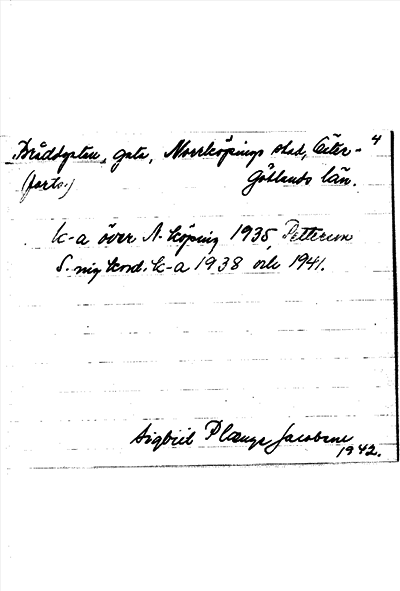 Bråddgatan, gata, Norrköpings stad, Öster- 4
(forts.) Götlands län.
k-a över N-köping 1935, Petterson
S. nig kord. k-a 1938 och 1941.
Sigbrit Plænge Jacobson
1942.